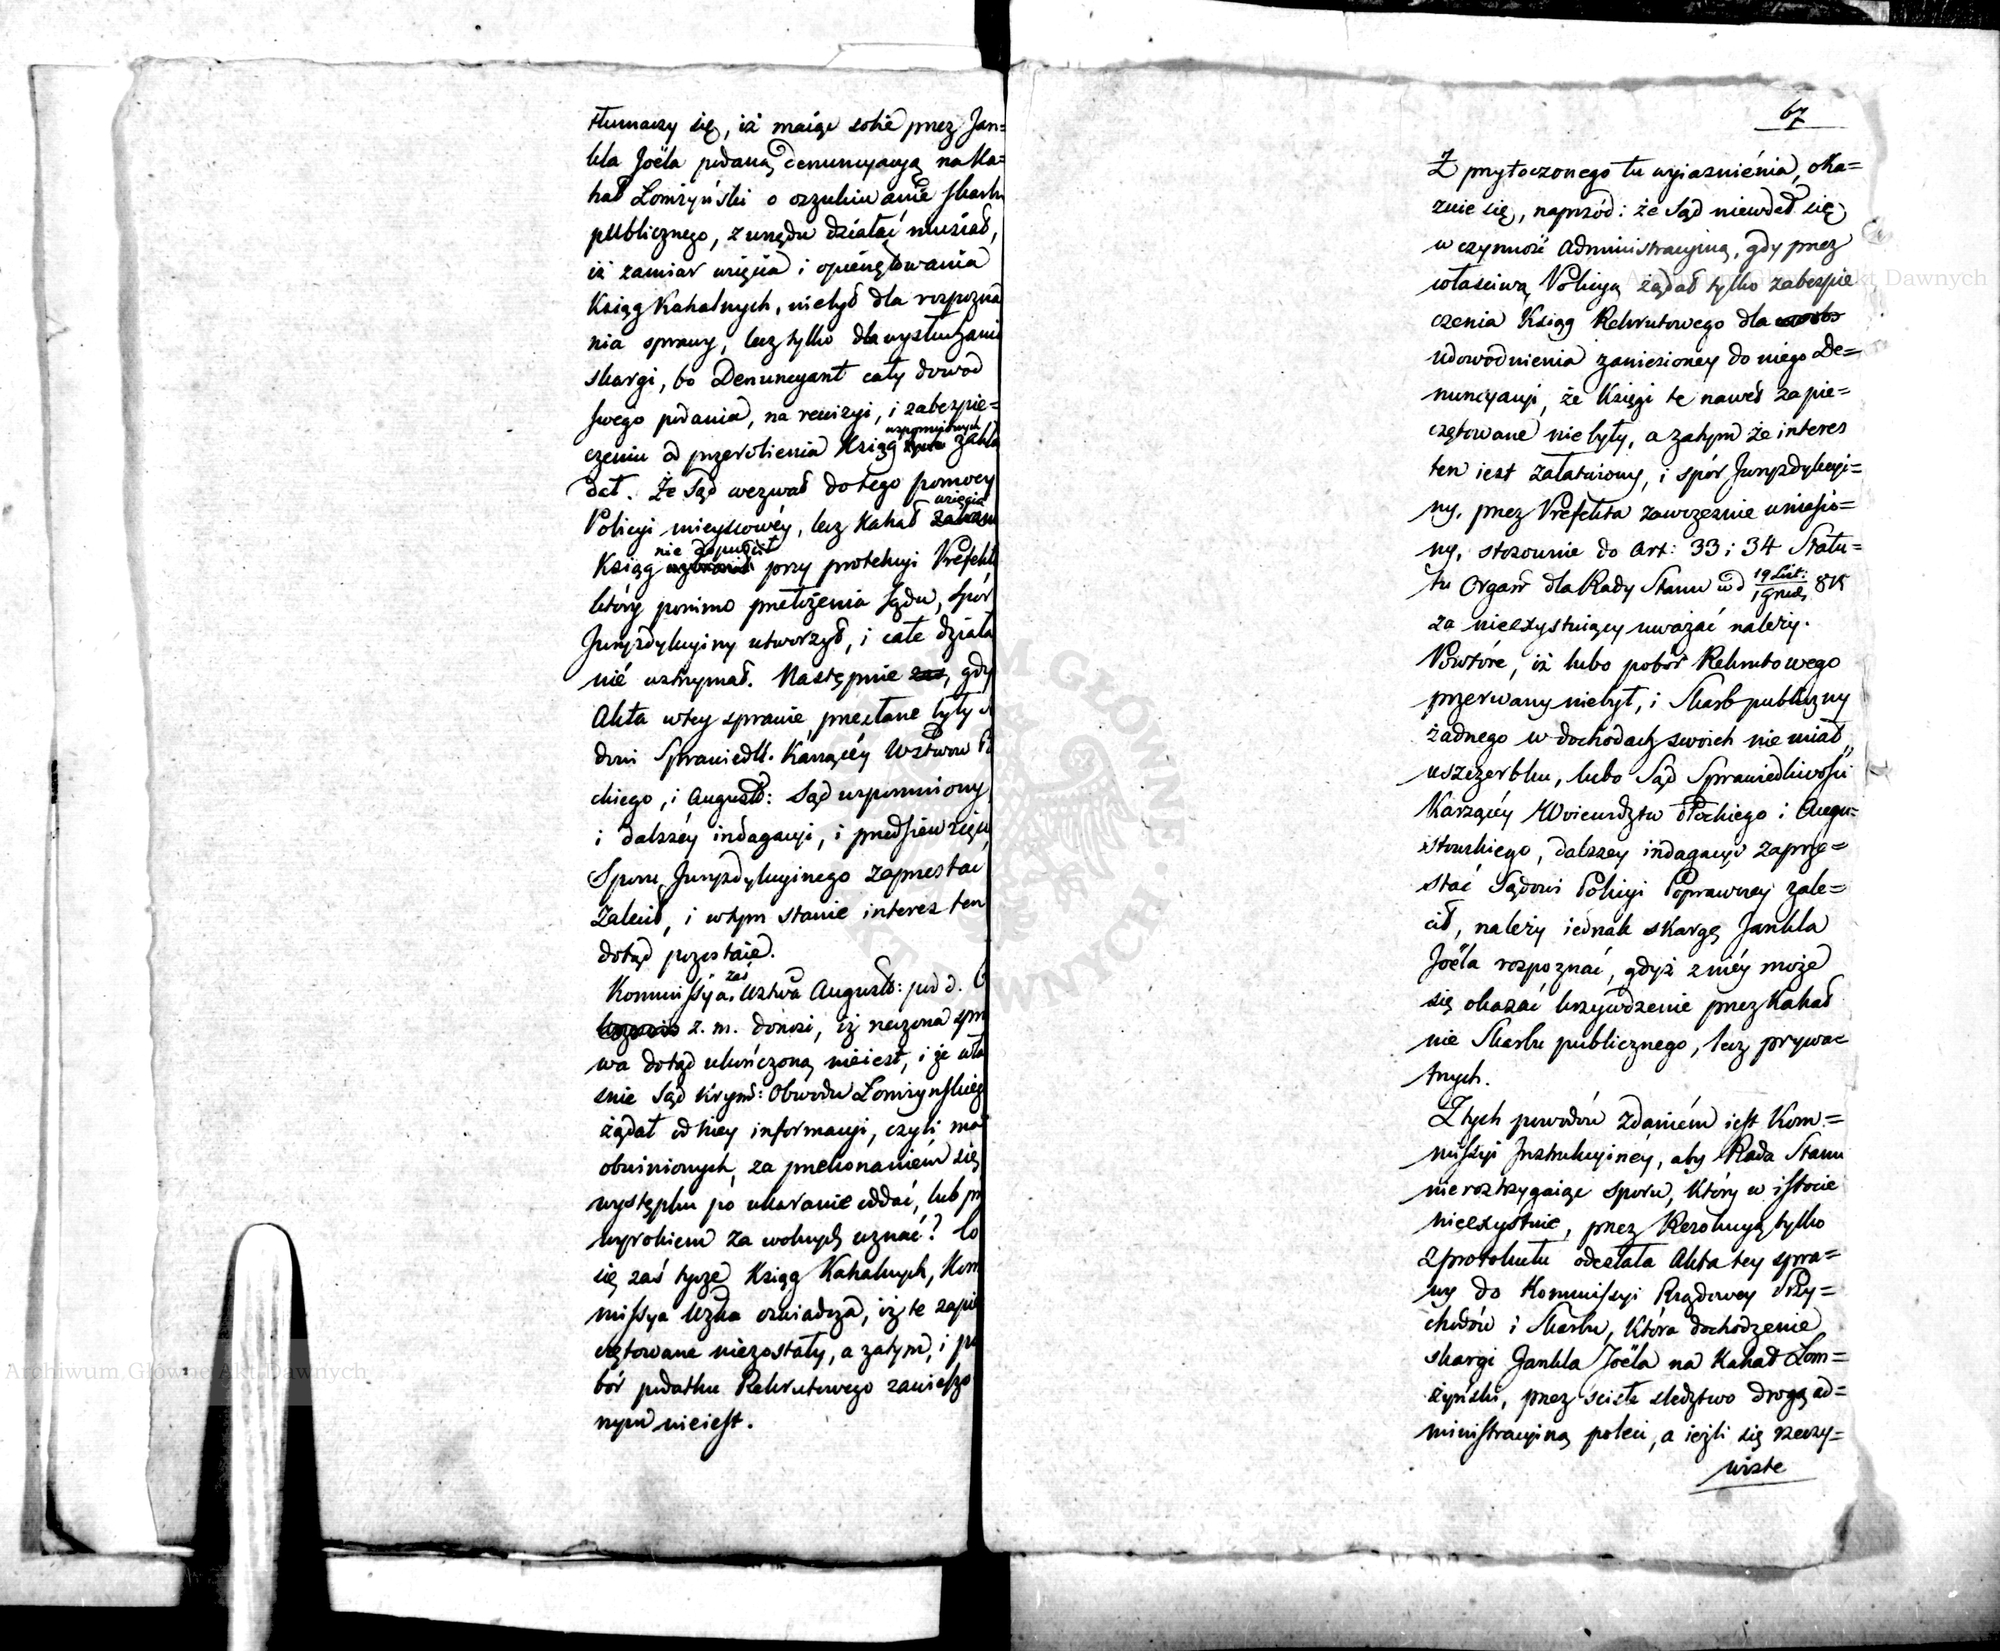 tłumaczy się, iż maiąc sobie przez Jan=
kla Joëla podaną denuncyacyą na Ka=
hał Łomżyński o oszukiwanie Skarbu
publicznego, z urzędu działać musiał,
iż zamiar wzięcia i opieczętowania
Ksiąg Kahalnych, niebył dla rozpozna
nia sprawy, lecz tylko dla wysłuchania
skargi, bo Denuncyant cały dowód
swego podania, na rewizyi, i zabezpie=
czeniu od przerobienia Ksiąg wspomnionych zakła
dał. Że Sąd wezwał do tego pomocy
Policyi mieyscowéy, lecz Kahał wzięcia
Ksiąg nie dopuścił przy protekcyi Prefekta
który pomimo przełożenia Sądu, Spór
Juryzdykcyiny utworzył, i całe działa
nié wstrzymał. Następnie zaś, gdy
Akta w tey sprawie, przesłane były
dowi Sprawiedl. Karzącéy Wsztwow Pł
ckiego, i Augusto: Sąd wspomniony,
i dalszéy indagacyi, i przedsiewzięcia
Sporu Juryzdykcyinego zaprzestać
zalecił, i w tym stanie interes ten
dotąd pozostaie.
Kommissya zaś Wsztwa Augusto: pod d. 6
z. m. donosi, iż rzeczona spra
wa dotąd ukończoną nieiest, i że wła
śnie Sąd Krym: Obwodu Łomżynskieg
żądał od niey informacyi, czyli ma
obwinionych, za przekonaniem się
występku po ukaranie oddać, lub pr
wyrokiem za wolnych uznać? Co
się zaś tycze Ksiąg Kahalnych, Kom
missya Wzka oświadcza, iż te zapie
czętowane niezostały, a zatym, i po
bór podatku Rekrutowego zawieszo
nym nieiest.
67
Z przytoczonego tu wyiaśnienia, oka=
zuie się, naprzód: że Sąd niewdał się
w czynność Administracyiną, gdy przez
właściwą Policyą żądał tylko zabezpie
czenia Ksiąg Rekrutowego dla
udowodnienia zaniesioney do niego De=
nuncyacyi, że Księgi te nawet zapie=
czętowane nie były, a zatym że interes
ten iest załatwiony, i spór Juryzdykcyi=
ny, przez Prefekta zawcześnie wniesio=
ny, stosownie do Art: 33 i 34 Statu=
tu Organ dla Rady Stanu od 19 List: / 1 Grud. 815
za nieexystuiący uważać należy.
Powtóre, iż lubo pobór Rekrutowego
przerwany niebył, i Skarb publiczny
żadnego w dochodach swoich nie miał
uszczerbku, lubo Sąd Sprawiedliwości
Karzącéy Woiewdztw Płockiego i Augu=
stowskiego, dalszey indagacyi zaprze=
stać Sądowi Policyi Poprawczey zale=
cił, należy iednak skargę Jankla
Joëla rozpoznać, gdyż z niéy może
się okazać krzywdzenie przez Kahał
nie Skarbu publicznego, lecz prywa=
tnych.
Z tych powodów zdaniem iest Kom=
missyi Instrukcyinéy, aby Rada Stanu
nierozstrzygaiąc sporu, który w istocie
nieexystuie, przez Rezolucyą tylko
z protokułu odesłała Akta tey spra=
wy do Kommissyi Rządowey Przy=
chodów i Skarbu, która dochodzenie
skargi Jankla Joëla na Kahał Łom=
żyński, przez ścisłe sledztwo drogą ad=
ministracyiną poleci, a ieżli się rzeczy=
wiste
Archiwum Główne Akt Dawnych
Archiwum Główne Akt Dawnych